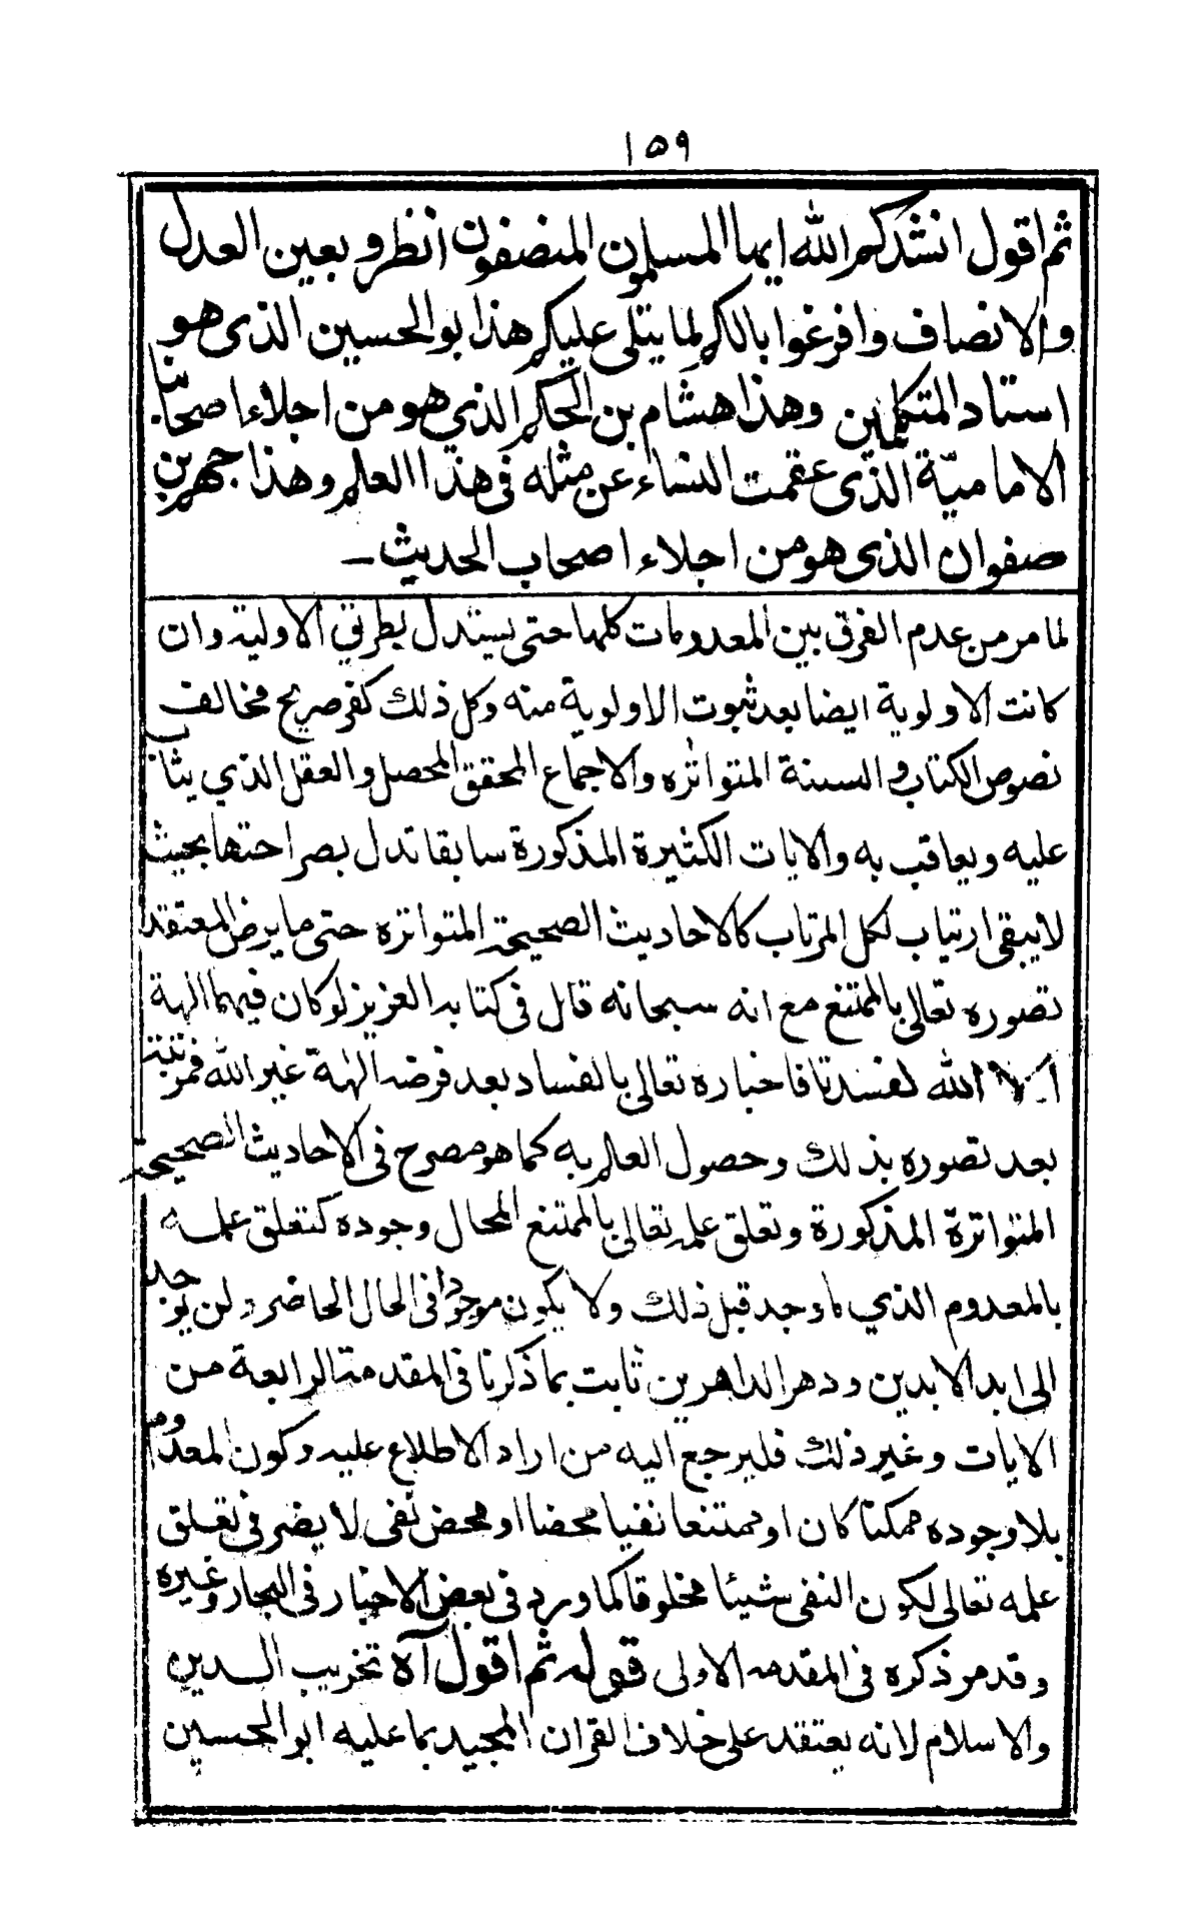 ١٥٩
ثم اقول انشدكم الله ايها المسلمون المنصفون انظروا بعين العدل
والانصاف وافرغوا بالكم لما يتلى عليكم هذا ابو الحسين الذي هو
استاد المتكلمين وهذا هشام بن الحكم الذي هو من اجلاء اصحابنا
الامامية الذي عقمت النساء عن مثله في هذا العلم وهذا جهم بن
صفوان الذي هو من اجلاء اصحاب الحديث ـ
لما مر من عدم الفرق بين المعدومات كلها حتى يستدل بطريق الاولية وان
كانت الاولوية ايضا بعد ثبوت الاولوية منه وكل ذلك كفر صريح مخالف
نصوص الكتاب والسنة المتواتره والاجماع المحقق المحصل والعقل الذي يثاب
عليه ويعاقب به والايات الكثيرة المذكورة سابقا تدل بصراحتها بحيث
لا يبقى ارتياب لكل المرتاب كالاحاديث الصحيحة المتواتره حتى ما يرض المعتقد
تصوره تعالى بالممتنع مع انه سبحانه قائل في كتابه العزيز لو كان فيهما الهة
الا الله لفسدتا فاخباره تعالى بالفساد بعد فرضه الهة غير الله فمرتبته
بعد تصوره بذلك وحصول العلم به كما هو مصرح في الاحاديث الصحيحة
المتواترة المذكورة وتعلق علمه تعالى بالممتنع المحال وجوده كتعلق علمه
بالمعدوم الذي ما وجد قبل ذلك ولا يكون موجودا في الحال الحاضر ولن يوجد
الى ابد الابدين ودهر الداهرين ثابت بما ذكرنا في المقدمة الرابعة من
الايات وغير ذلك فليرجع اليه من اراد الاطلاع عليه وكون المعدوم
بلا وجوده ممكنا كان او ممتنعا نفيا محضا او محض نفي لا يضر في تعلق
علمه تعالى لكون النفي شيئا مخلوقا كما ورد في بعض الاخبار في البحار وغيره
وقد مر ذكره في المقدمه الاولى قوله ثم اقول آه تخريب الدين
والاسلام لانه يعتقد على خلاف القران المجيد بما عليه ابو الحسين